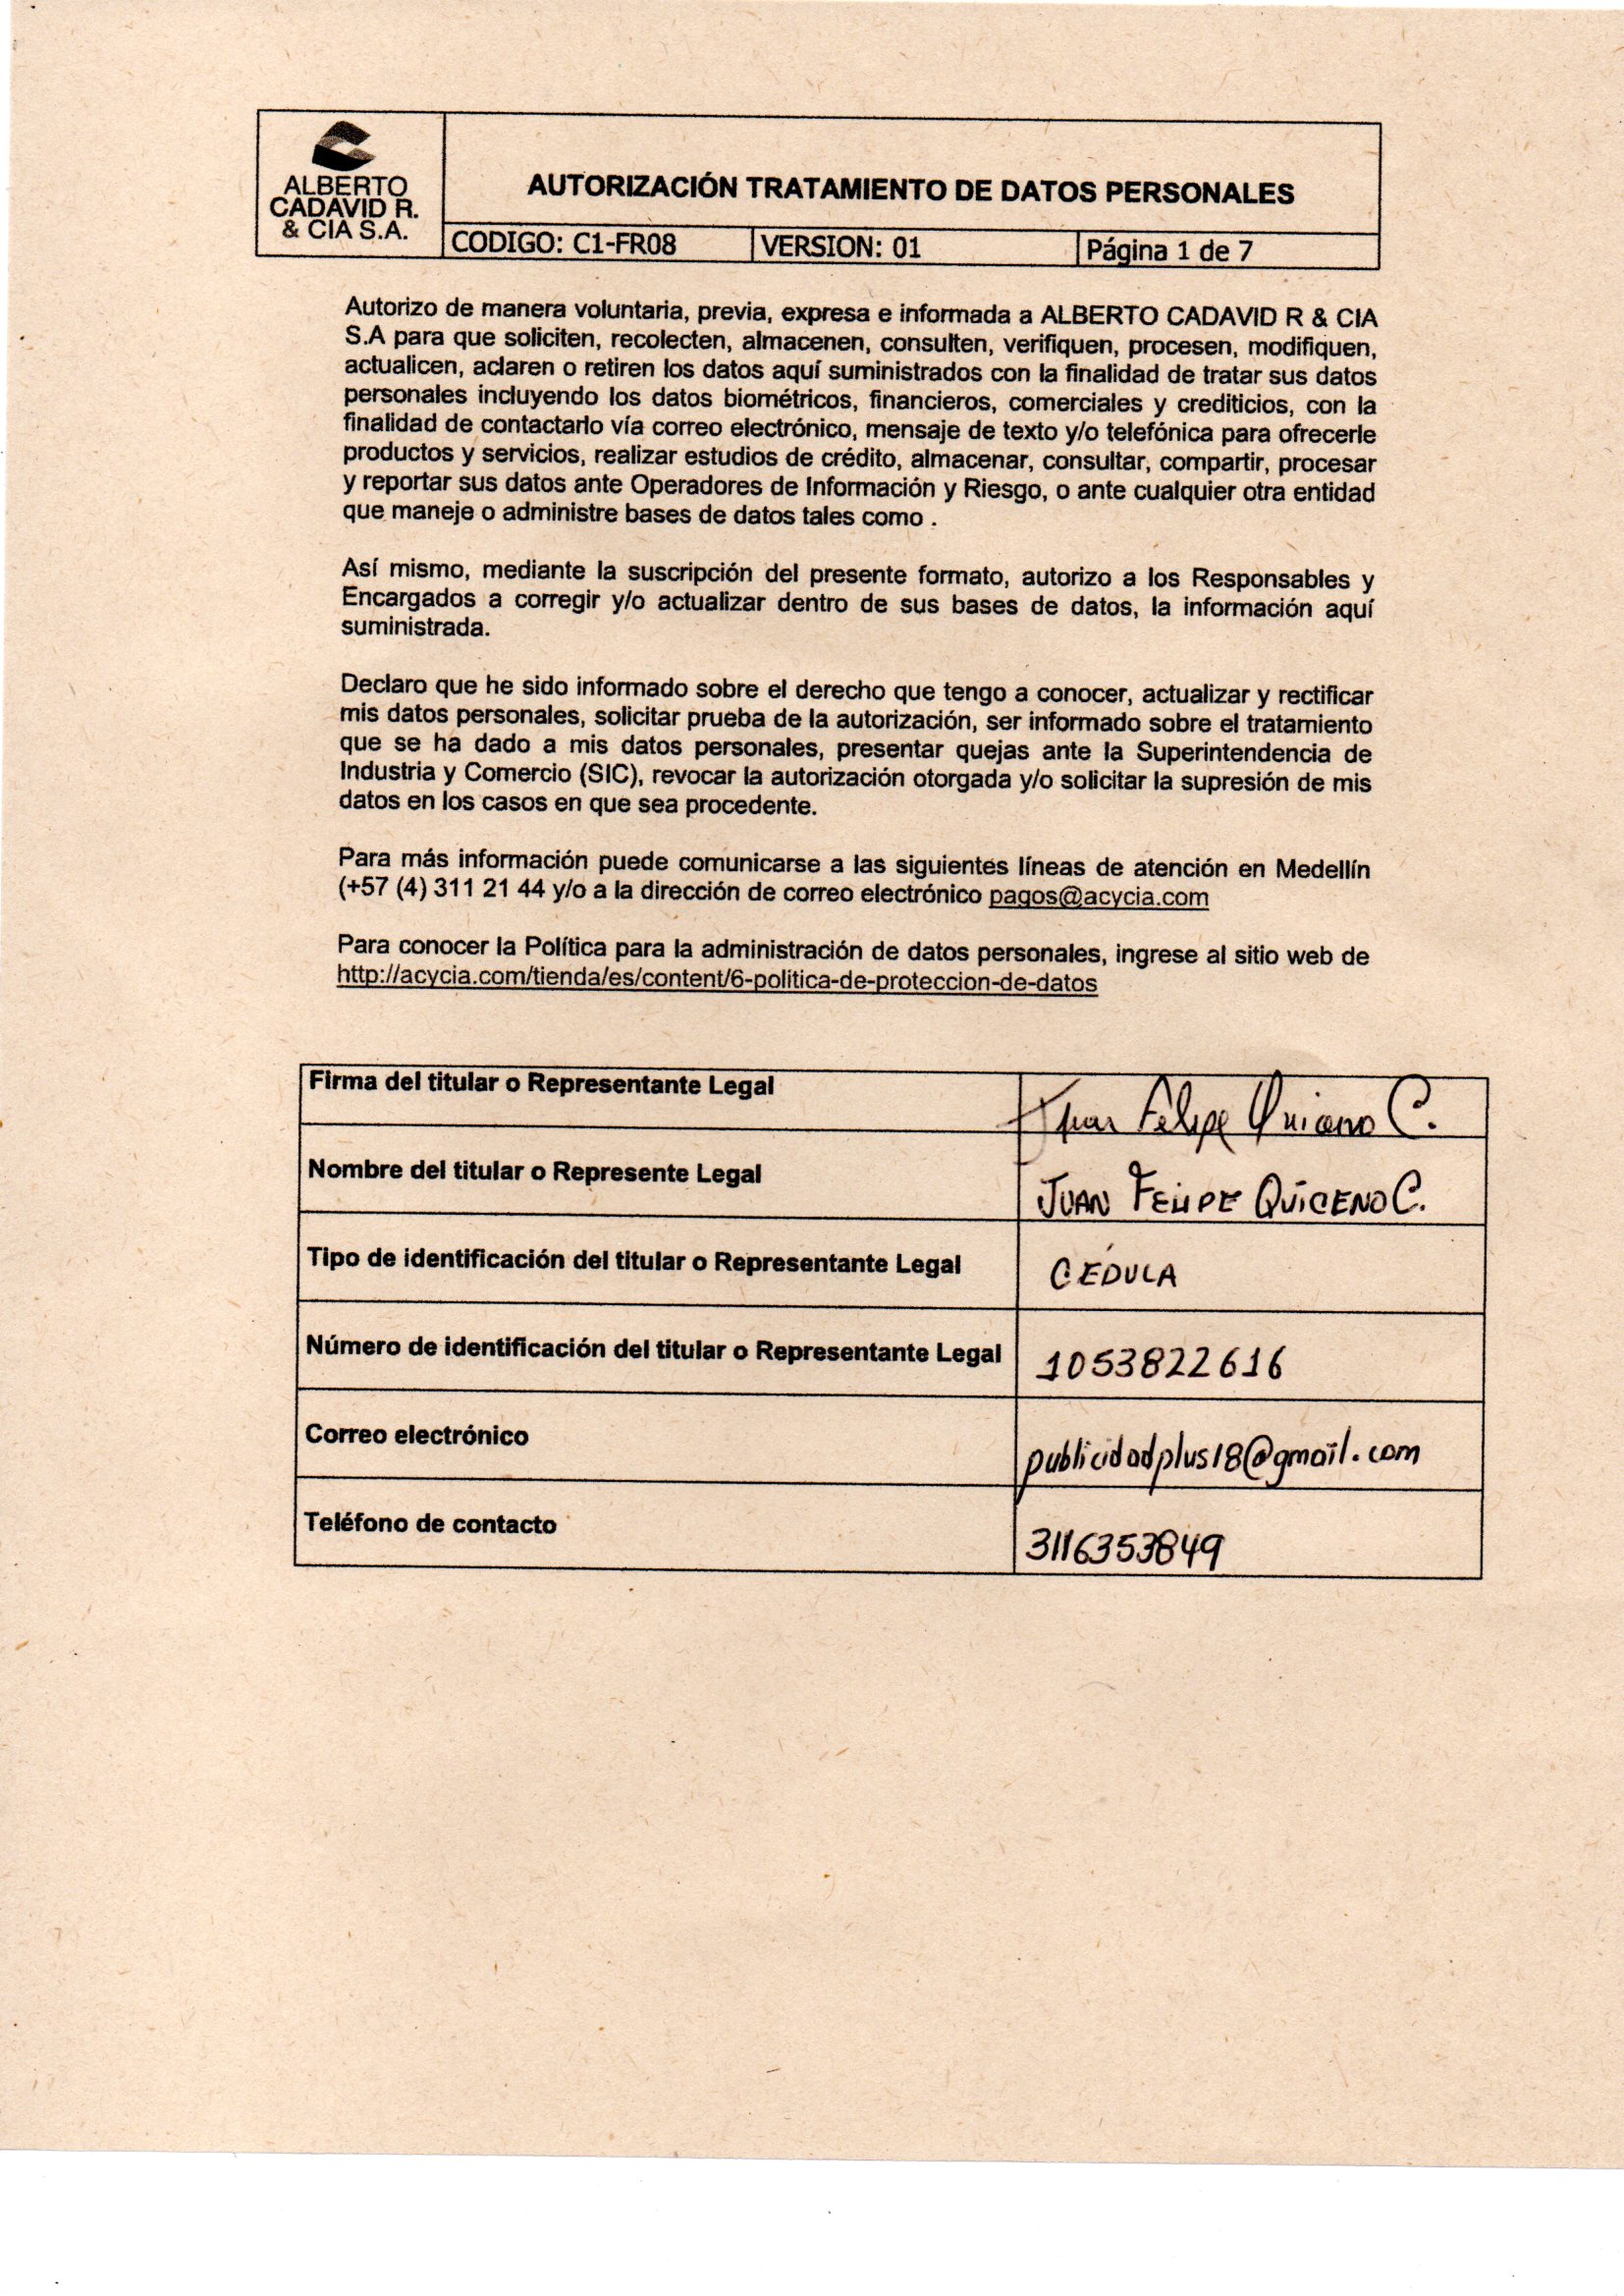 ALBERTO
CADAVID R.
& CIA S.A.
AUTORIZACIÓN TRATAMIENTO DE DATOS PERSONALES
CODIGO: C1-FR08 VERSION: 01 Página 1 de 7
Autorizo de manera voluntaria, previa, expresa e informada a ALBERTO CADAVID R & CIA
S.A para que soliciten, recolecten, almacenen, consulten, verifiquen, procesen, modifiquen,
actualicen, aclaren o retiren los datos aquí suministrados con la finalidad de tratar sus datos
personales incluyendo los datos biométricos, financieros, comerciales y crediticios, con la
finalidad de contactarlo vía correo electrónico, mensaje de texto y/o telefónica para ofrecerle
productos y servicios, realizar estudios de crédito, almacenar, consultar, compartir, procesar
y reportar sus datos ante Operadores de Información y Riesgo, o ante cualquier otra entidad
que maneje o administre bases de datos tales como .
Así mismo, mediante la suscripción del presente formato, autorizo a los Responsables y
Encargados a corregir y/o actualizar dentro de sus bases de datos, la información aquí
suministrada.
Declaro que he sido informado sobre el derecho que tengo a conocer, actualizar y rectificar
mis datos personales, solicitar prueba de la autorización, ser informado sobre el tratamiento
que se ha dado a mis datos personales, presentar quejas ante la Superintendencia de
Industria y Comercio (SIC), revocar la autorización otorgada y/o solicitar la supresión de mis
datos en los casos en que sea procedente.
Para más información puede comunicarse a las siguientes líneas de atención en Medellín
(+57 (4) 311 21 44 y/o a la dirección de correo electrónico pagos@acycia.com
Para conocer la Política para la administración de datos personales, ingrese al sitio web de
http://acycia.com/tienda/es/content/6-politica-de-proteccion-de-datos
Firma del titular o Representante Legal Juan Felipe Quiceno C.
Nombre del titular o Represente Legal JUAN FELIPE QUICENO C.
Tipo de identificación del titular o Representante Legal CÉDULA
Número de identificación del titular o Representante Legal 1053822616
Correo electrónico publicidadplus18@gmail.com
Teléfono de contacto 3116353849